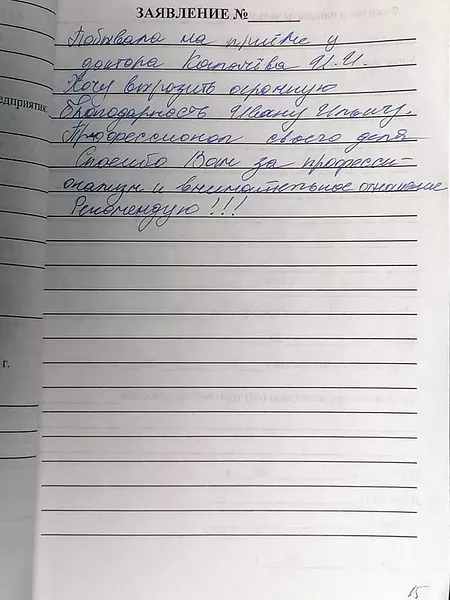 ЗАЯВЛЕНИЕ №
Побывала на приёме у
доктора Капачёва И.И.
Хочу выразить огромную
едприятия:
благодарность Ивану Ильичу.
Профессионал своего дела
Спасибо Вам за професси-
онализм и внимательное отношение
Рекомендую!!!
г.
15